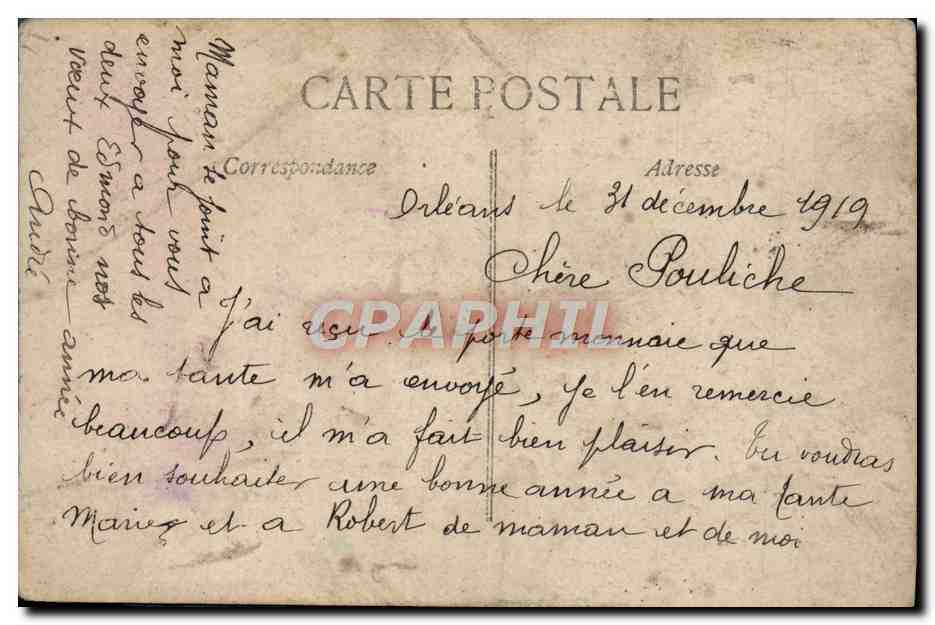 CARTE POSTALE
Correspondance
Adresse
Orléans le 31 décembre 1919
Chère Pouliche
J'ai reçu le porte monnaie que
ma tante m'a envoyé, je l'en remercie
beaucoup, il m'a fait bien plaisir. Tu voudras
bien souhaiter une bonne année a ma tante
Marie et a Robert de maman et de moi
Maman se joint a
moi pour vous
envoyer a tous les
deux Edmond nos
vœux de bonne année
André
CPAPHIL